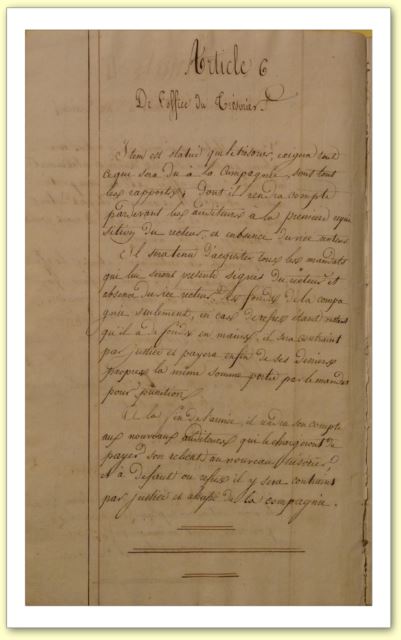 Article 6
De l'office du Trésorier.
Item est statué que le trésorier, exigera tout
ce qui sera du à la Compagnie, sous tout
les rapports; dont il rendra compte
pardevant les auditeurs a la premiere requi
sition du recteur, et en absence du vice recteur
Il sera tenu d'acquiter tous les mandats
qui lui seront présenté signés du recteur et
absence du vice recteur, des fonds de la compa
gnie seulement, en cas de refus étant notoire
qu'il a de fonds en mains, il sera contraint
par justice et payera enfin de ses deniers
propres la même somme portée par le mandat
pour punition.
A la fin de l'année, il rendra son compte
aux nouveaux auditeurs qui le chargeront de
payer son relicat au nouveau Trésorier,
et à defaut ou refus il y sera contraint
par justice et de la compagnie.